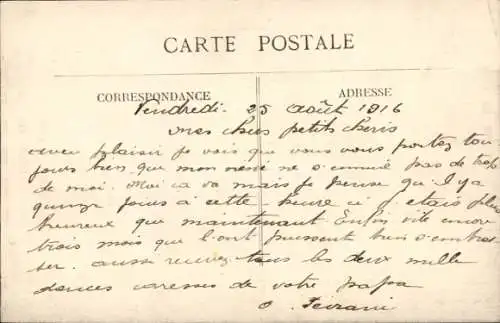 CARTE POSTALE
CORRESPONDANCE
ADRESSE
Vendredi 25 août 1916
mes chers petits cheris
avec plaisir je vois que vous vous portez tou-
jours bien que mon ne s'ennuie pas de trop
de moi. Moi ca va mais je pense qu'il y a
quinze jours à cette heure ci j'etais plus
heureux que maintenant Enfin vite encore
trois mois que l'on puissent bien s'embras
ser. aussi recevez tous les deux mille
douces caresses de votre papa